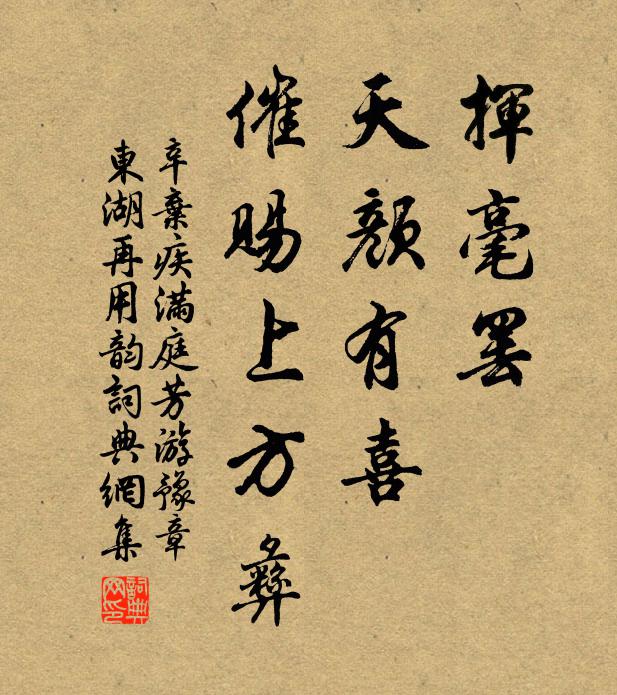 揮毫罷
天顏有喜
催賜上方彝
辛棄疾滿庭芳游豫章
東湖再用韵詞典網集
詞典网印